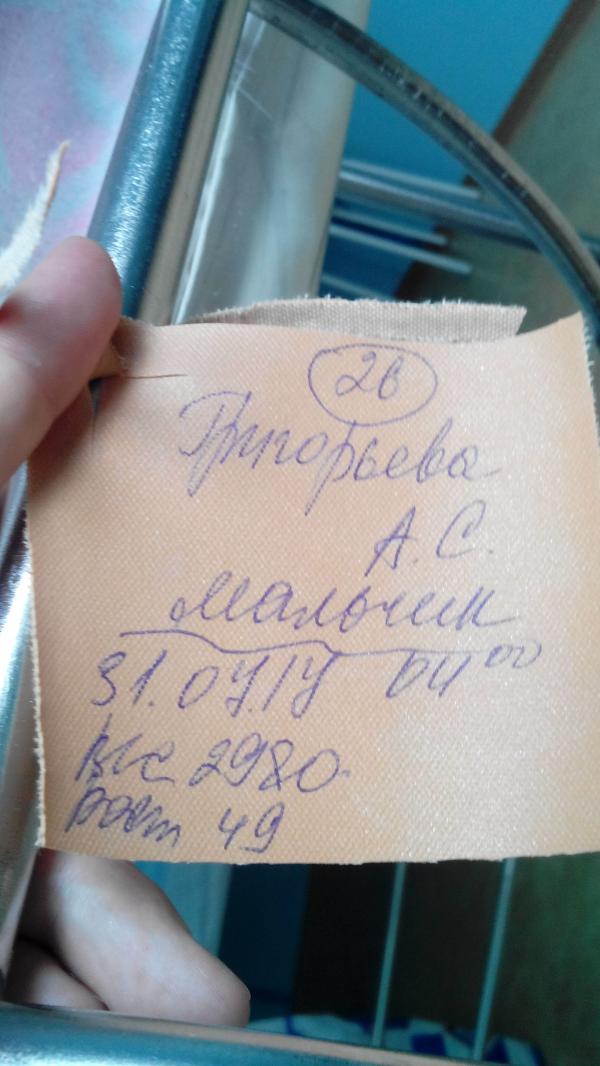 2в
Григорьева
А. С.
Мальчик
31.07.17 04⁰⁰
Вес 2980
Рост 49